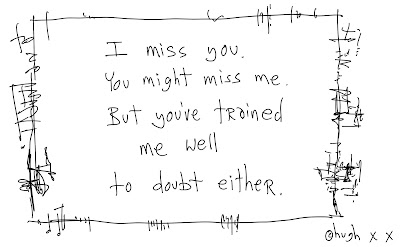 I miss you.
You might miss me.
But you've trained
me well
to doubt either.
@hugh x x